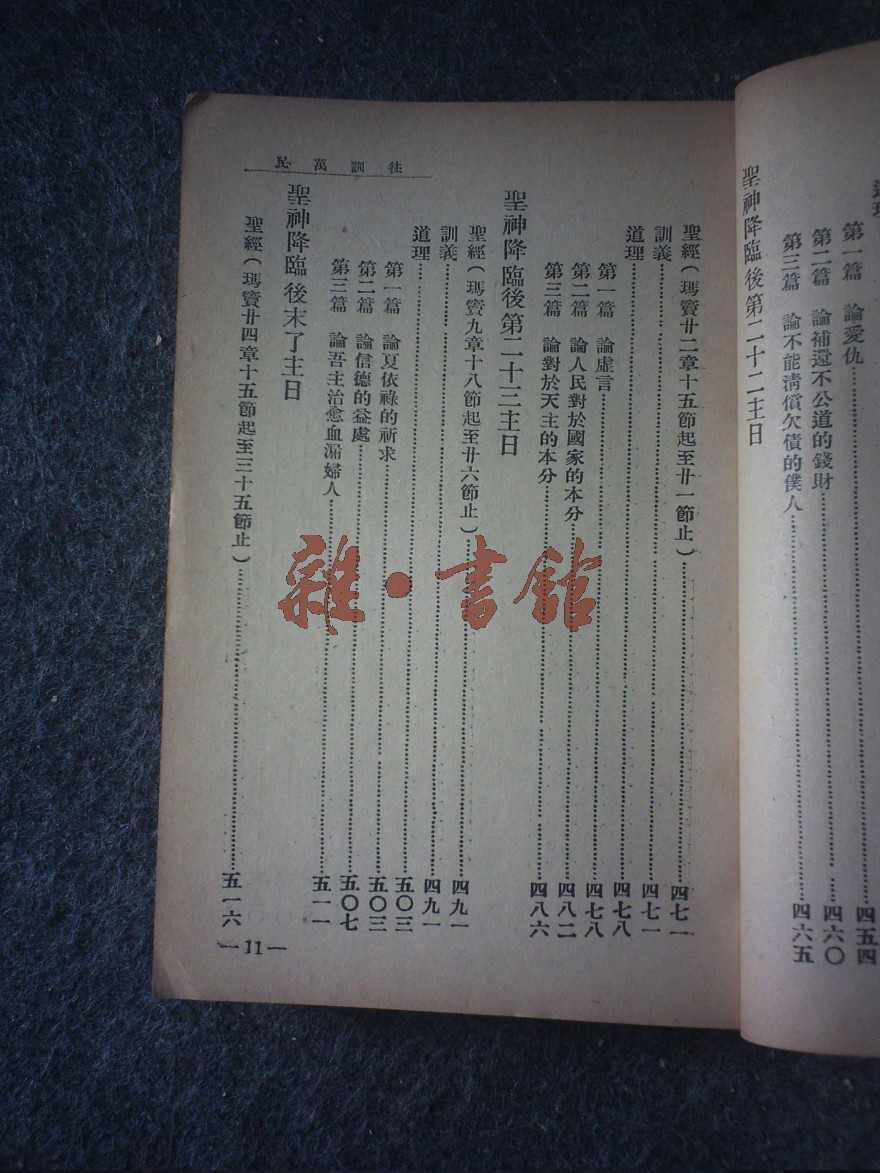 道理
第一篇　論愛仇……四五四
第二篇　論補還不公道的錢財……四六〇
第三篇　論不能淸償欠債的僕人……四六五
聖神降臨後第二十二主日
往訓萬民
聖經(瑪竇廿二章十五節起至廿一節止)……四七一
訓義……四七一
道理……四七八
第一篇　論虛言……四七八
第二篇　論人民對於國家的本分……四八二
第三篇　論對於天主的本分……四八六
聖神降臨後第二十三主日
聖經(瑪竇九章十八節起至廿六節止)……四九一
訓義……四九一
道理……五〇三
第一篇　論夏依祿的祈求……五〇三
第二篇　論信德的益處……五〇七
第三篇　論吾主治愈血漏婦人……五一一
聖神降臨後末了主日
聖經(瑪竇廿四章十五節起至三十五節止)……五一六
—11—
雜·書館